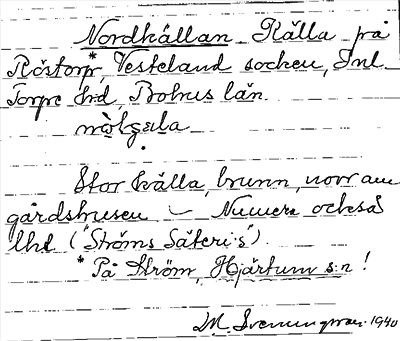 Nordkällan Källa på
Röstorp*, Vesterland socken, Inl.
Torpe hd, Bohus län.
Stor källa, brunn, norr om
gårdshusen – Numera också
lhl ("Ströms Säteri:s").
* På Ström, Hjärtum s:n!
M. Svenungsson. 1940